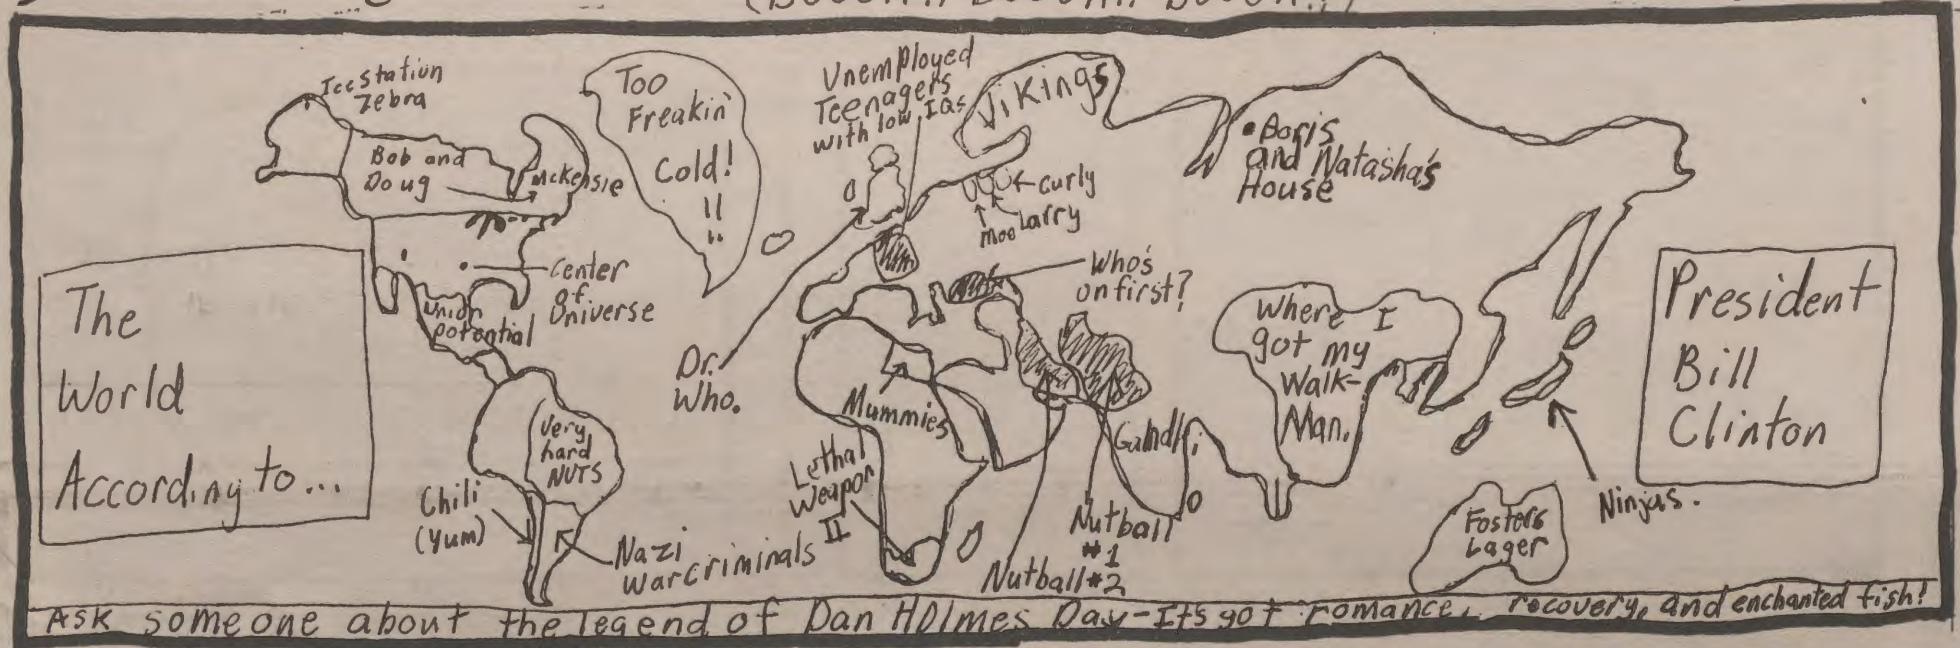 The
World
According to...
Ice Station
Zebra
Bob and
Doug
McKensie
Center
of
Universe
Union
potential
Very
hard
NUTS
Chili
(Yum)
Nazi
warcriminals
Too
Freakin'
Cold!
!!
Unemployed
Teenagers
with low IQs
Dr.
Who.
Vikings
Curly
Larry
Moe
Who's
on first?
Mummies
Lethal
Weapon
II
Nutball
#1
Nutball #2
Gahdhi
Boris
and Natasha's
House
Where I
got my
Walk-
Man.
Ninjas.
Fosters
Lager
President
Bill
Clinton
Ask someone about the legend of Dan Holmes Day-Its got romance, recovery, and enchanted fish!